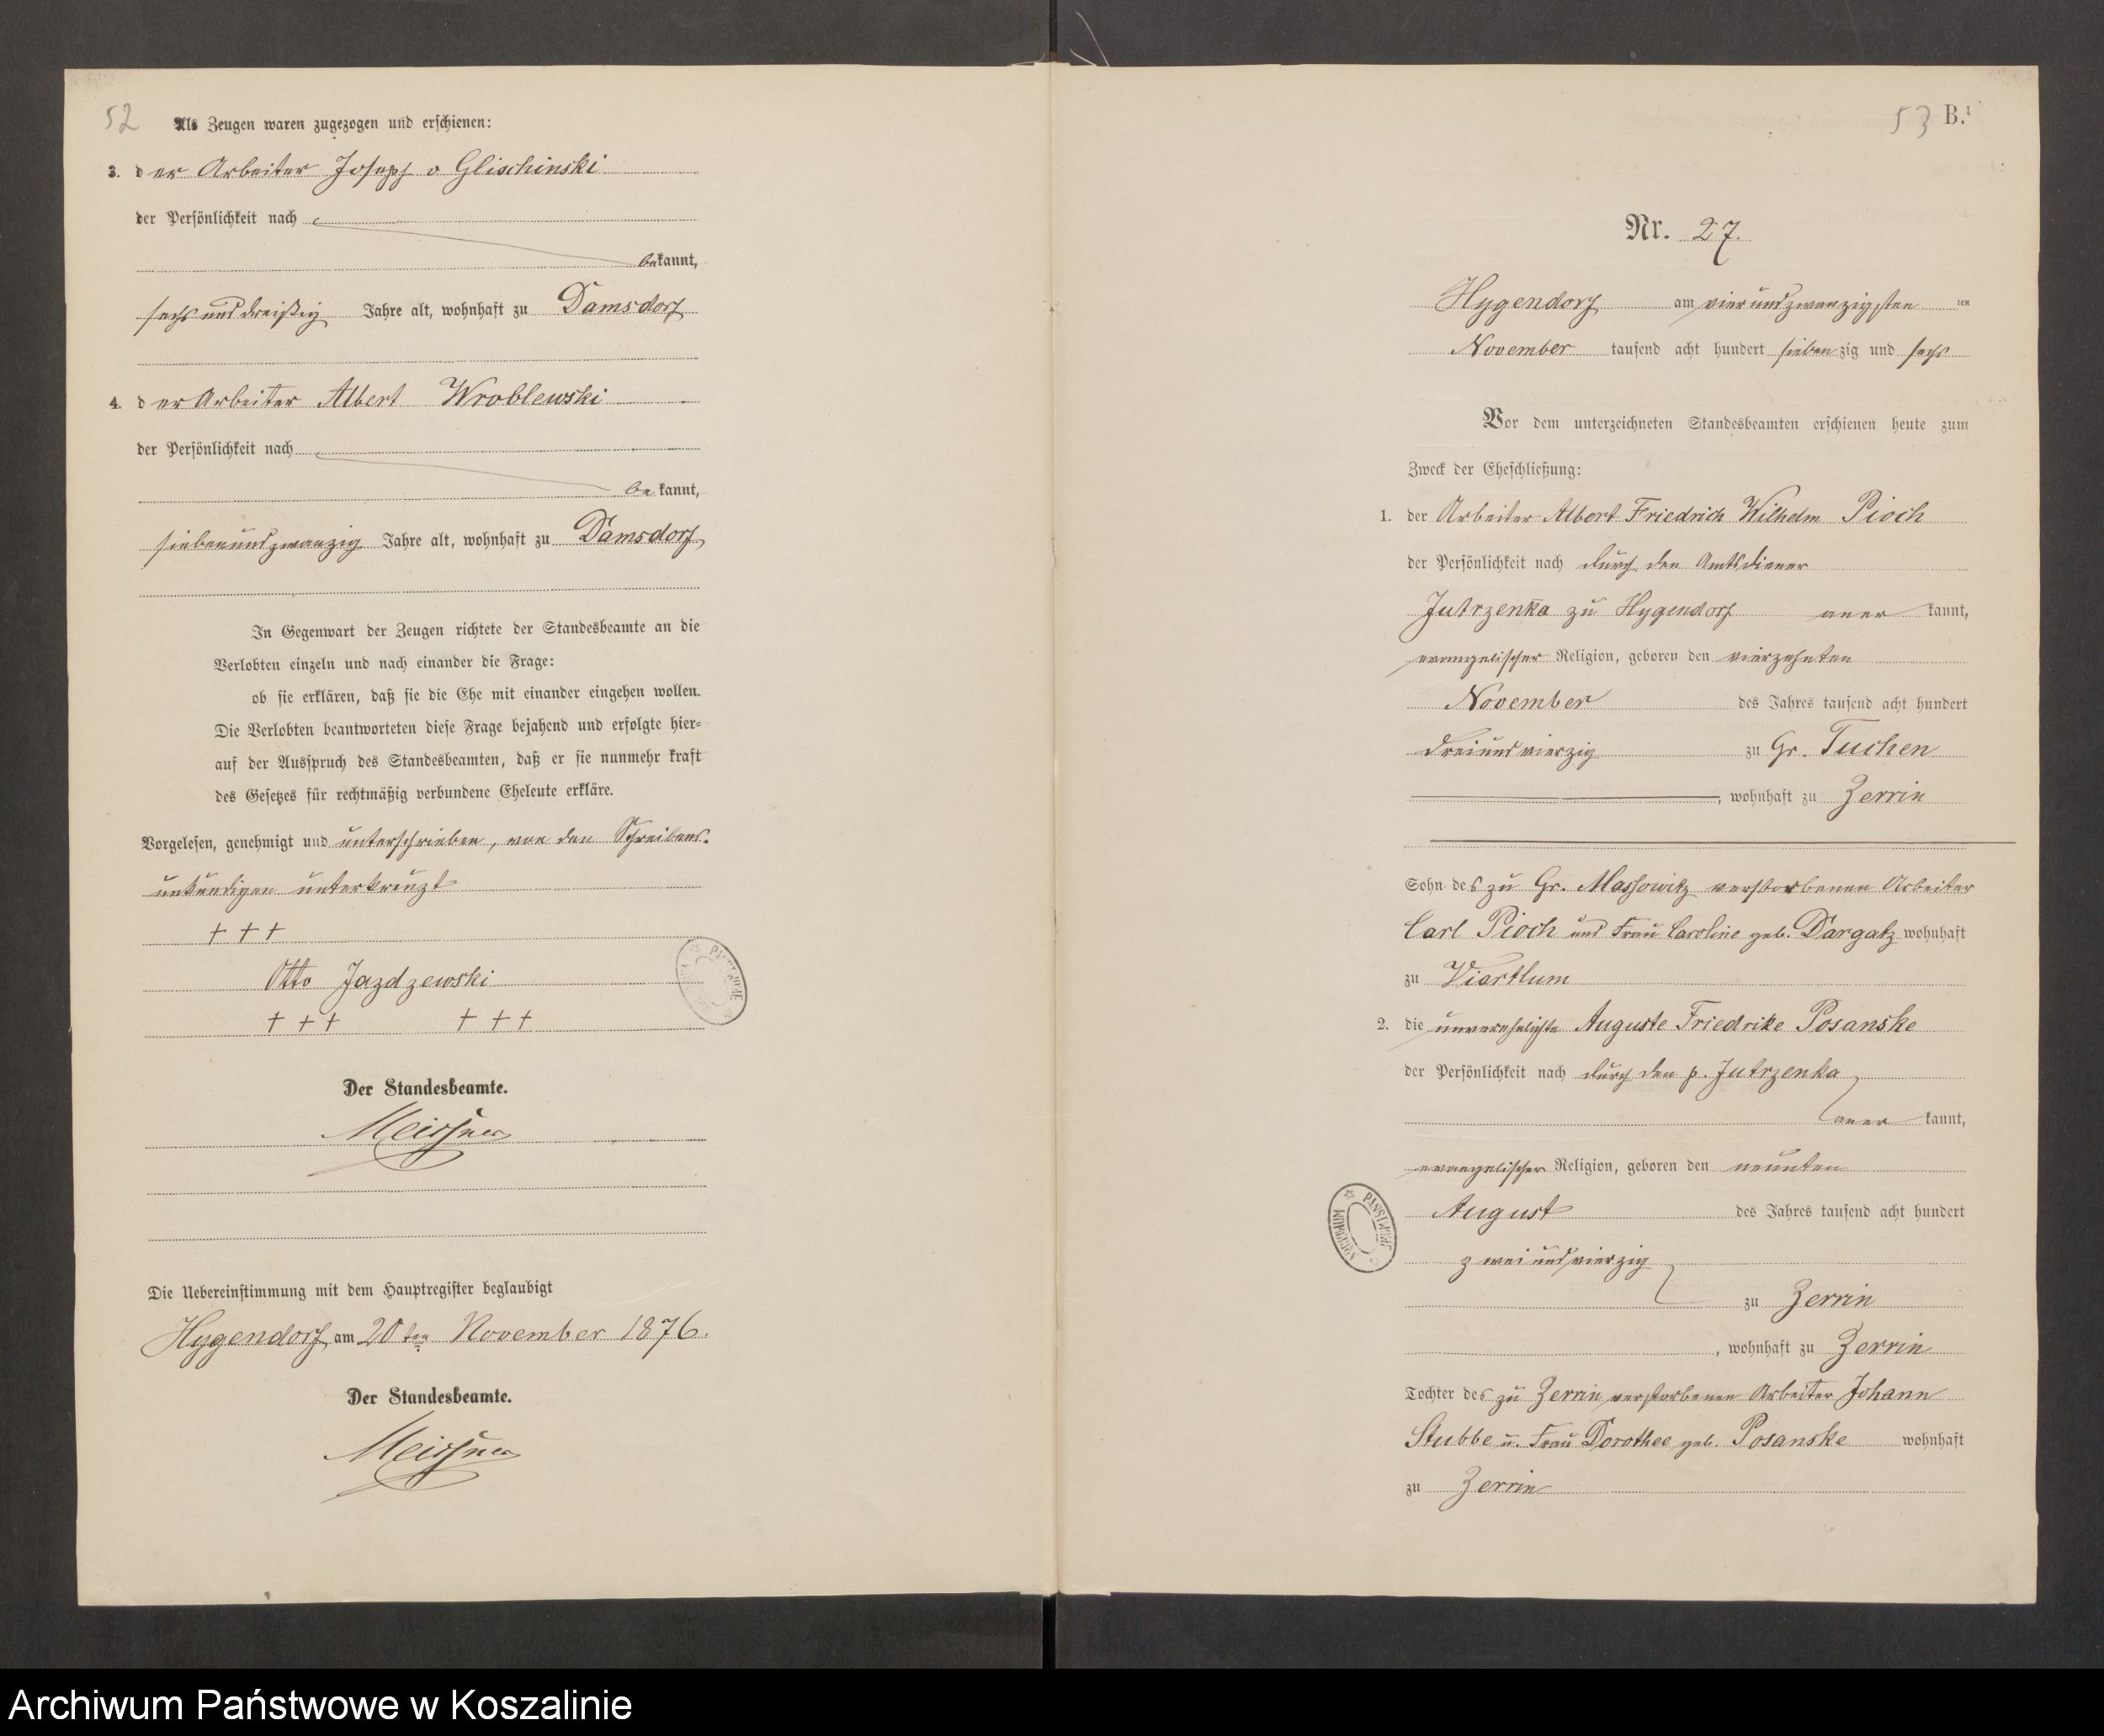 52
Als Zeugen waren zugezogen und erschienen:
3. der Arbeiter Joseph v Glischinski
der Persönlichkeit nach
bekannt,
sechs und dreißig Jahre alt, wohnhaft zu Damsdorf
4. der Arbeiter Albert Wroblewski
der Persönlichkeit nach
bekannt,
siebenundzwanzig Jahre alt, wohnhaft zu Damsdorf
In Gegenwart der Zeugen richtete der Standesbeamte an die
Verlobten einzeln und nach einander die Frage:
ob sie erklären, daß sie die Ehe mit einander eingehen wollen.
Die Verlobten beantworteten diese Frage bejahend und erfolgte hier=
auf der Ausspruch des Standesbeamten, daß er sie nunmehr kraft
des Gesetzes für rechtmäßig verbundene Eheleute erkläre.
Vorgelesen, genehmigt und unterschrieben, von den Schreibens-
unkundigen unterkreuzt
+++
Otto Jazdzewski
+++ +++
Der Standesbeamte.
Meissner
Die Uebereinstimmung mit dem Hauptregister beglaubigt
Hygendorf am 20ten November 1876.
Der Standesbeamte.
Meissner
53 B.¹
Nr. 27.
Hygendorf am vierundzwanzigsten ten
November tausend acht hundert siebenzig und sechs
Vor dem unterzeichneten Standesbeamten erschienen heute zum
Zweck der Eheschließung:
1. der Arbeiter Albert Friedrich Wilhelm Pioch
der Persönlichkeit nach durch den Amtsdiener
Jutrzenka zu Hygendorf anerkannt,
evangelischer Religion, geboren den vierzehnten
November des Jahres tausend acht hundert
dreiundvierzig zu Gr. Tuchen
, wohnhaft zu Zerrin
Sohn des zu Gr. Massowitz verstorbenen Arbeiter
Carl Pioch und Frau Caroline geb. Dargatz wohnhaft
zu Viartlum
2. die unverehelichte Auguste Friedrike Posanske
der Persönlichkeit nach durch den p. Jutrzenka
anerkannt,
evangelischer Religion, geboren den neunten
August des Jahres tausend acht hundert
zweiundvierzig
zu Zerrin
, wohnhaft zu Zerrin
Tochter des zu Zerrin verstorbenen Arbeiter Johann
Stubbe u. Frau Dorothee geb. Posanske wohnhaft
zu Zerrin
Archiwum Państwowe w Koszalinie